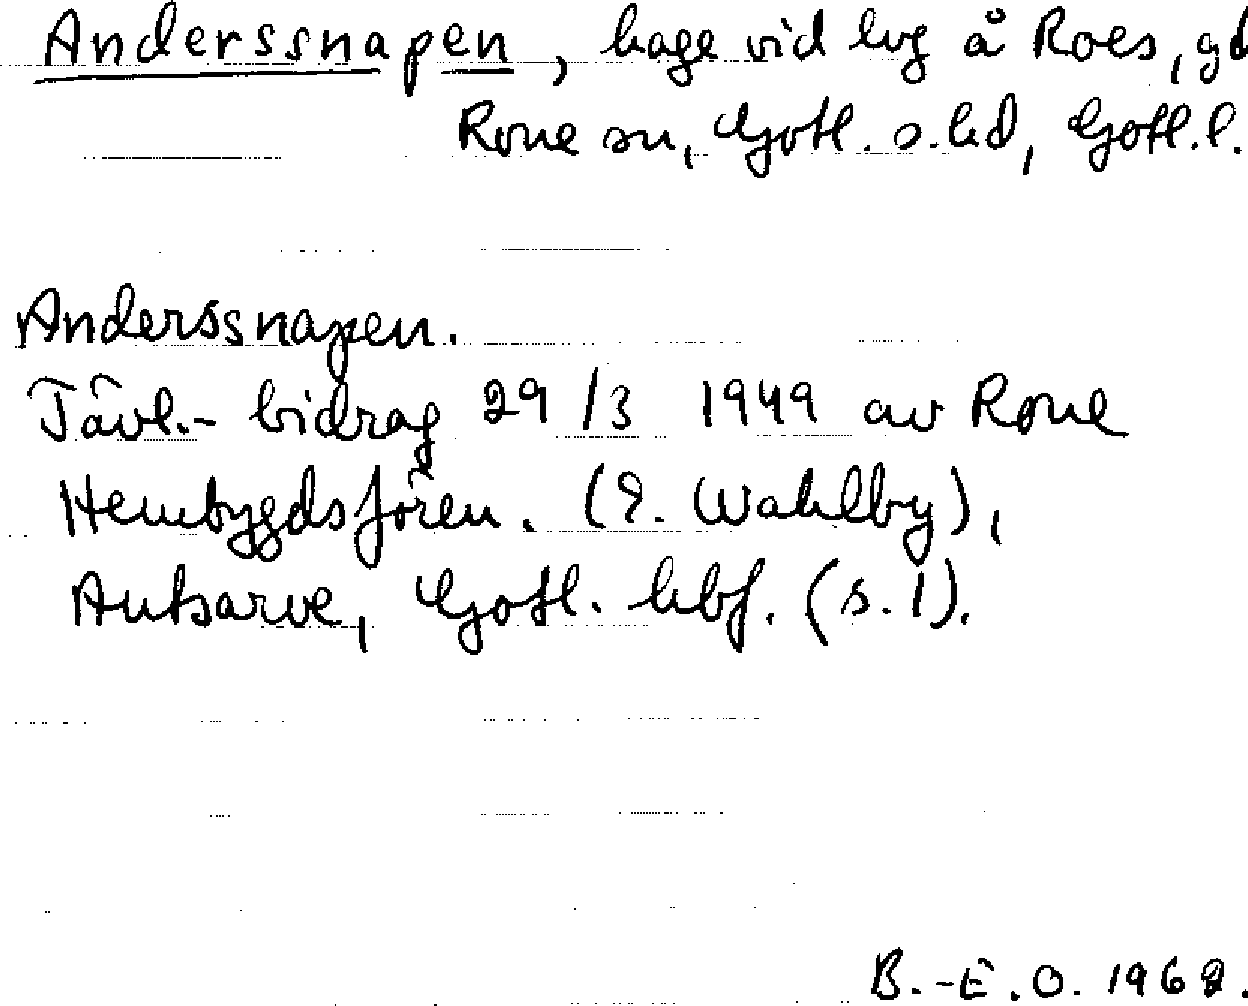 Anderssnapen, hage vid lvg å Roes, gd
Rone sn, Gotl. s. hd, Gotl. l.
Anderssnapen.
Tävl.-bidrag 29/3 1949 av Rone
Hembygdsfören. (E. Wahlby),
Autsarve, Gotl. hbf. (s. 1).
B.-E. O. 1968.